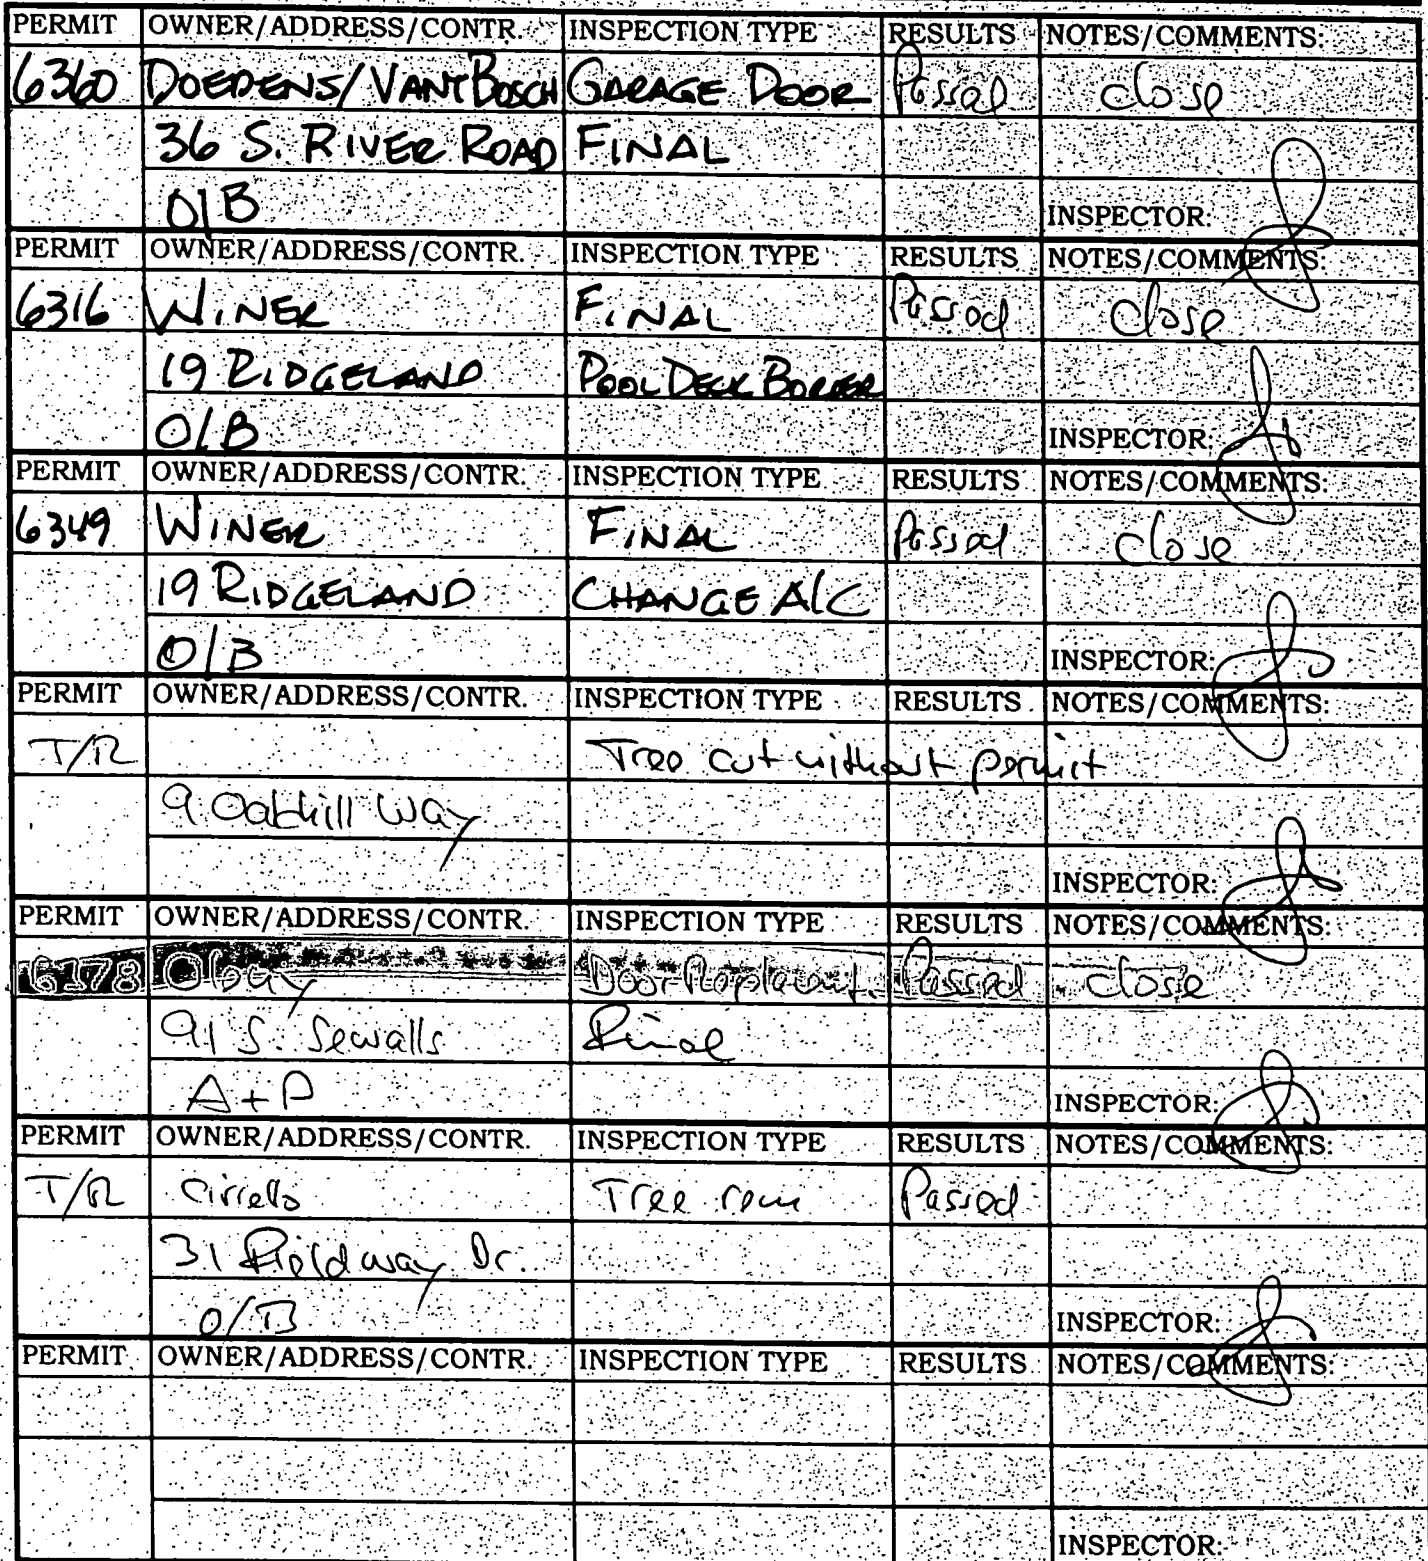 PERMIT OWNER/ADDRESS/CONTR. INSPECTION TYPE RESULTS NOTES/COMMENTS:
6360 DOEDENS/VANTBOSCH GARAGE DOOR Passed close
36 S. RIVER ROAD FINAL
O/B INSPECTOR:
PERMIT OWNER/ADDRESS/CONTR. INSPECTION TYPE RESULTS NOTES/COMMENTS:
6316 WINER FINAL Passed close
19 RIDGELAND POOL DECK BORDER
O/B INSPECTOR:
PERMIT OWNER/ADDRESS/CONTR. INSPECTION TYPE RESULTS NOTES/COMMENTS:
6349 WINER FINAL Passed close
19 RIDGELAND CHANGE A/C
O/B INSPECTOR:
PERMIT OWNER/ADDRESS/CONTR. INSPECTION TYPE RESULTS NOTES/COMMENTS:
T/R Tree cut without permit
9 Oakhill Way
INSPECTOR:
PERMIT OWNER/ADDRESS/CONTR. INSPECTION TYPE RESULTS NOTES/COMMENTS:
6378 Door Passed close
91 S. Sewalls Final
A+P INSPECTOR:
PERMIT OWNER/ADDRESS/CONTR. INSPECTION TYPE RESULTS NOTES/COMMENTS:
T/R Cirello Tree rem Passed
31 Fieldway Dr.
O/B INSPECTOR:
PERMIT OWNER/ADDRESS/CONTR. INSPECTION TYPE RESULTS NOTES/COMMENTS:
INSPECTOR: